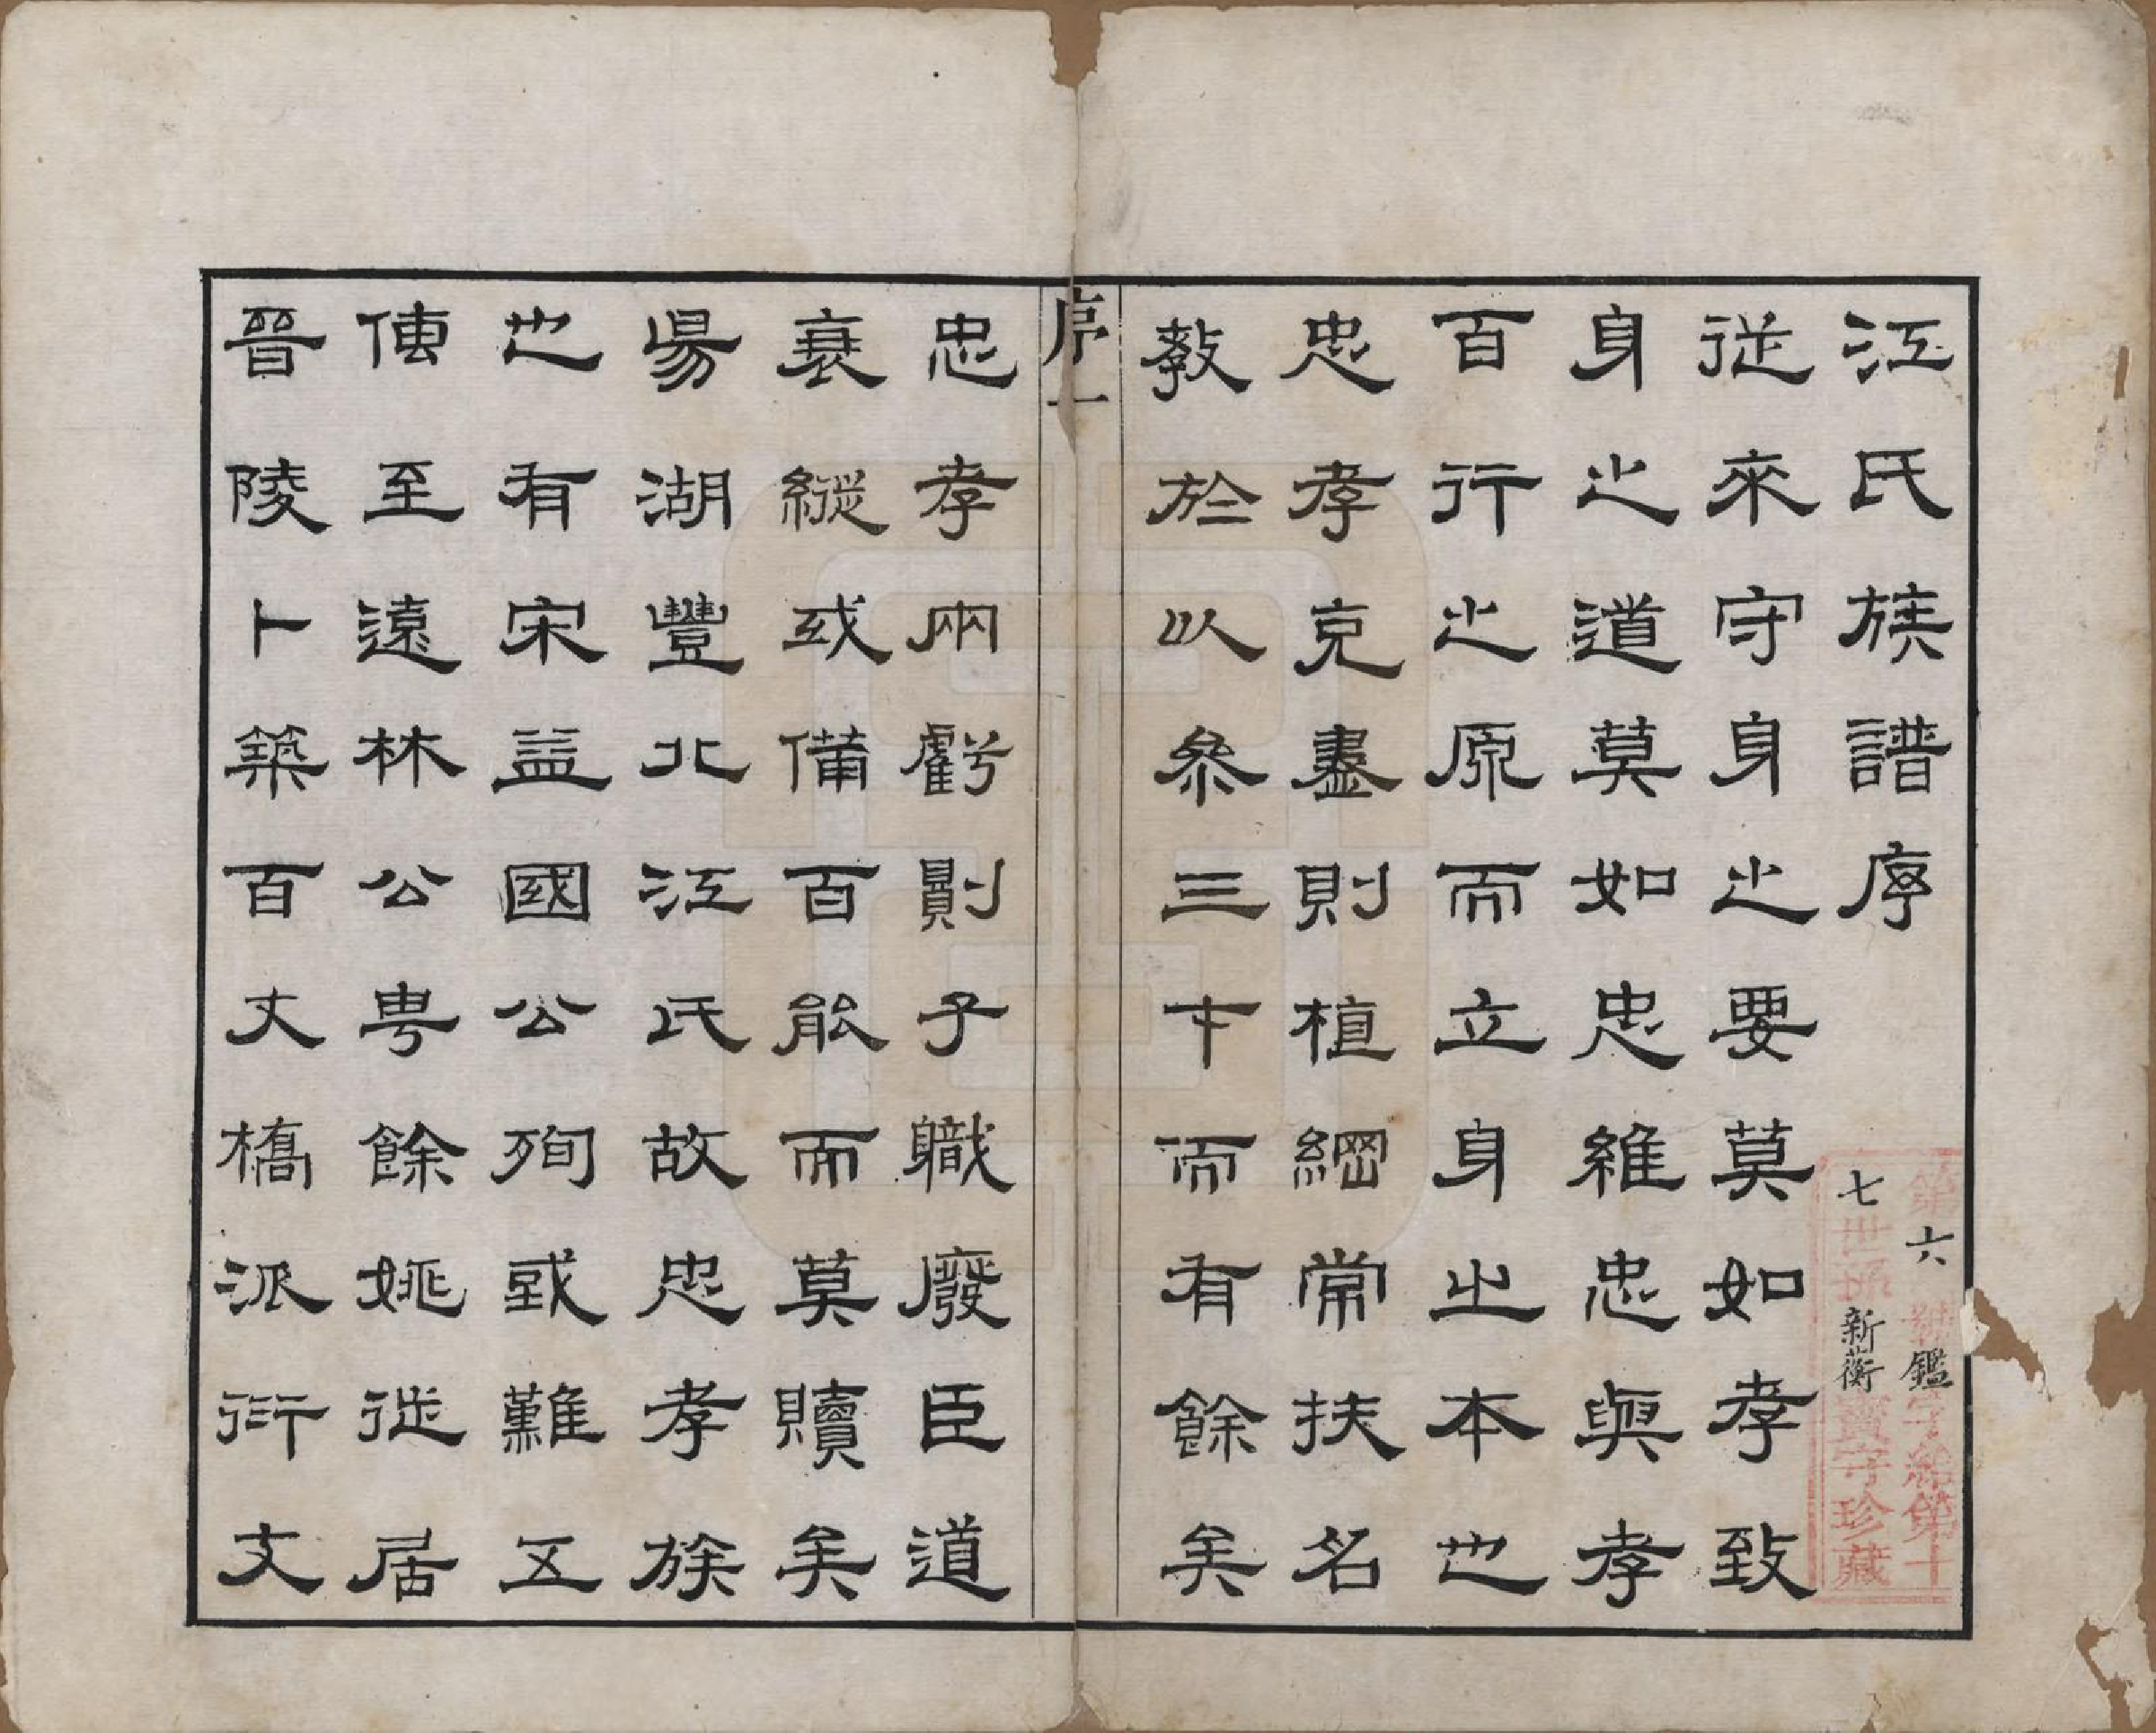 江氏族譜序
第六號鑑字給第十
七世孫新蘅寶守珍藏
從來守身之要莫如孝致
身之道莫如忠維忠與孝
百行之原而立身之本也
忠孝克盡則植綱常扶名
教於以參三才而有餘矣
序一
忠孝兩虧則子職廢臣道
衰縱或備百能而莫贖矣
昜湖豐北江氏故忠孝族
也有宋益國公殉或難五
傳至遠林公粤餘姚徙居
晉陵卜築百丈橋派衍文